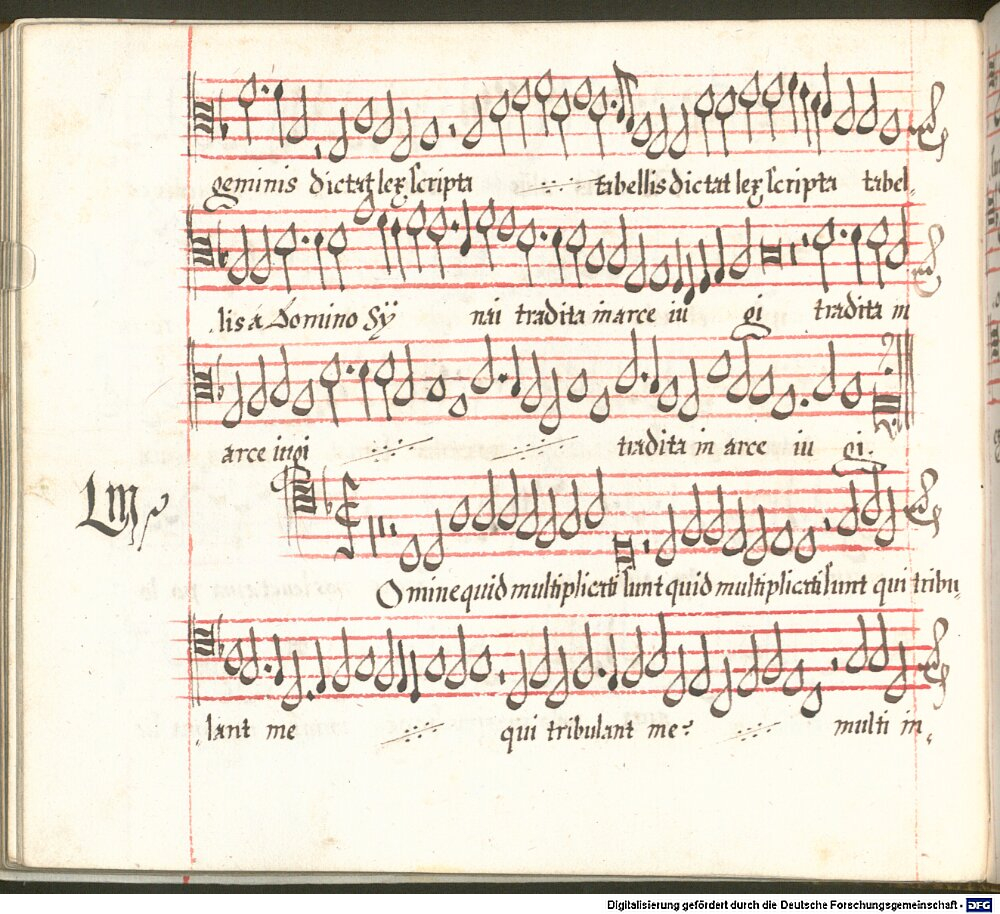 geminis dictat lex scripta tabellis dictat lex scripta tabel,
,lis a Domino Sÿ nai tradita in arce iu gi tradita in
arce iugi tradita in arce iu gi.
Omine quid multiplicati sunt quid multiplicati sunt qui tribu,
,lant me qui tribulant me: multi in,
Digitalisierung gefördert durch die Deutsche Forschungsgemeinschaft - DFG